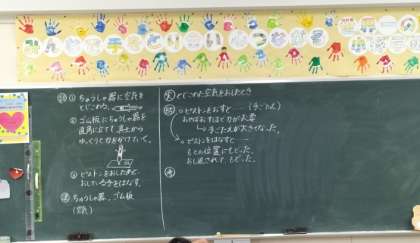 ① ちゅうしゃ器に空気を
とじこめる。
② ゴム板にちゅうしゃ器を
直角に立てて真上から
ゆっくりと力をかけていく。
③ ピストンをおしたあと
おしている手をはなす。
ちゅうしゃ器、ゴム板
とじこめた空気をおしたとき
○ピストンをおすと (手ごたえ)
おせばおすほど力が大変
→手ごたえが大きくなった。
○ピストンをはなすと
もとの位置にもどった。
おし返されて、もどった。